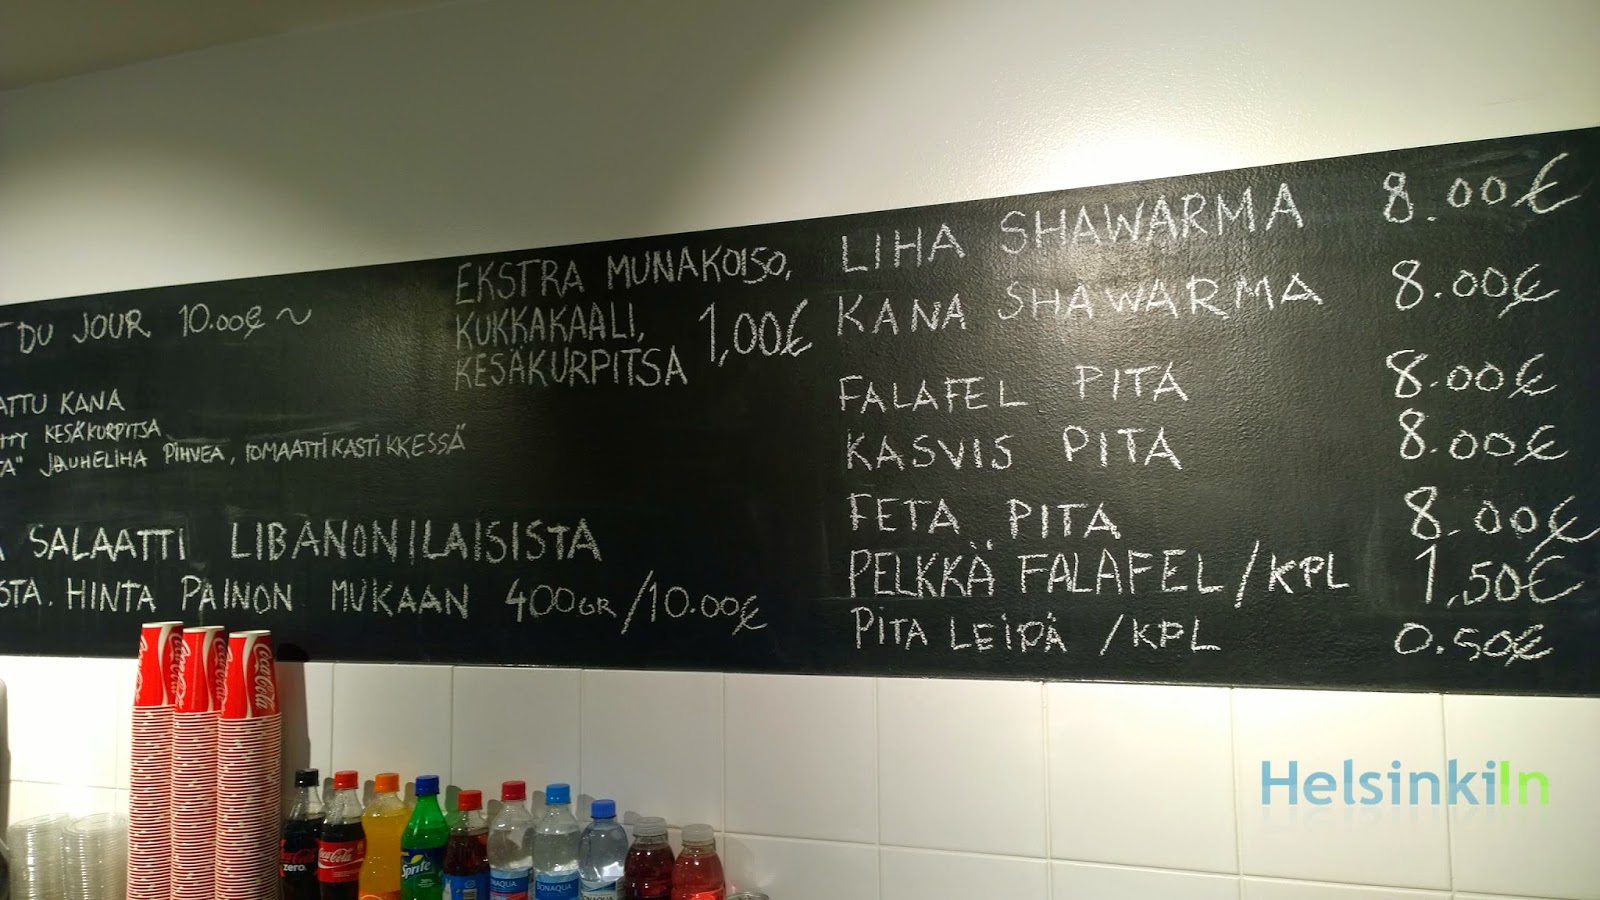 DU JOUR 10.00€ ~
KANA
KESÄKURPITSA
JAUHELIHA PIHVEA, TOMAATTIKASTIKKESSÄ
SALAATTI LIBANONILAISISTA
HINTA PAINON MUKAAN 400GR/10.00€
EKSTRA MUNAKOISO,
KUKKAKAALI, 1,00€
KESÄKURPITSA
LIHA SHAWARMA 8.00€
KANA SHAWARMA 8.00€
FALAFEL PITA 8.00€
KASVIS PITA 8.00€
FETA PITA 8.00€
PELKKÄ FALAFEL/KPL 1,50€
PITA LEIPÄ /KPL 0.50€
Coca-Cola
Coca-Cola
Coca-Cola
Coca-Cola
zero
Coca-Cola
Sprite
BONAQUA
BONAQUA
HelsinkiIn